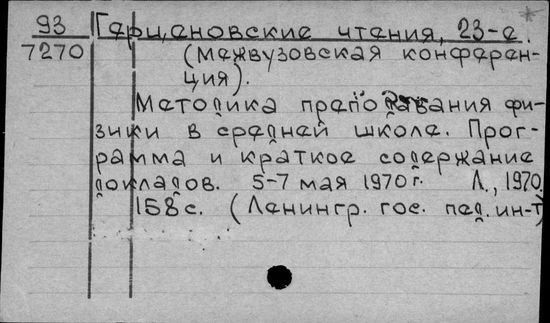 93 Герценовские чтения, 23-е.
7270 (межвузовская конферен-
ция).
Методика преподавания фи-
зики в средней школе. Прог-
рамма и краткое содержание
докладов. 5-7 мая 1970 г. Л., 1970.
158 с. (Ленингр. гос. пед. ин-т)